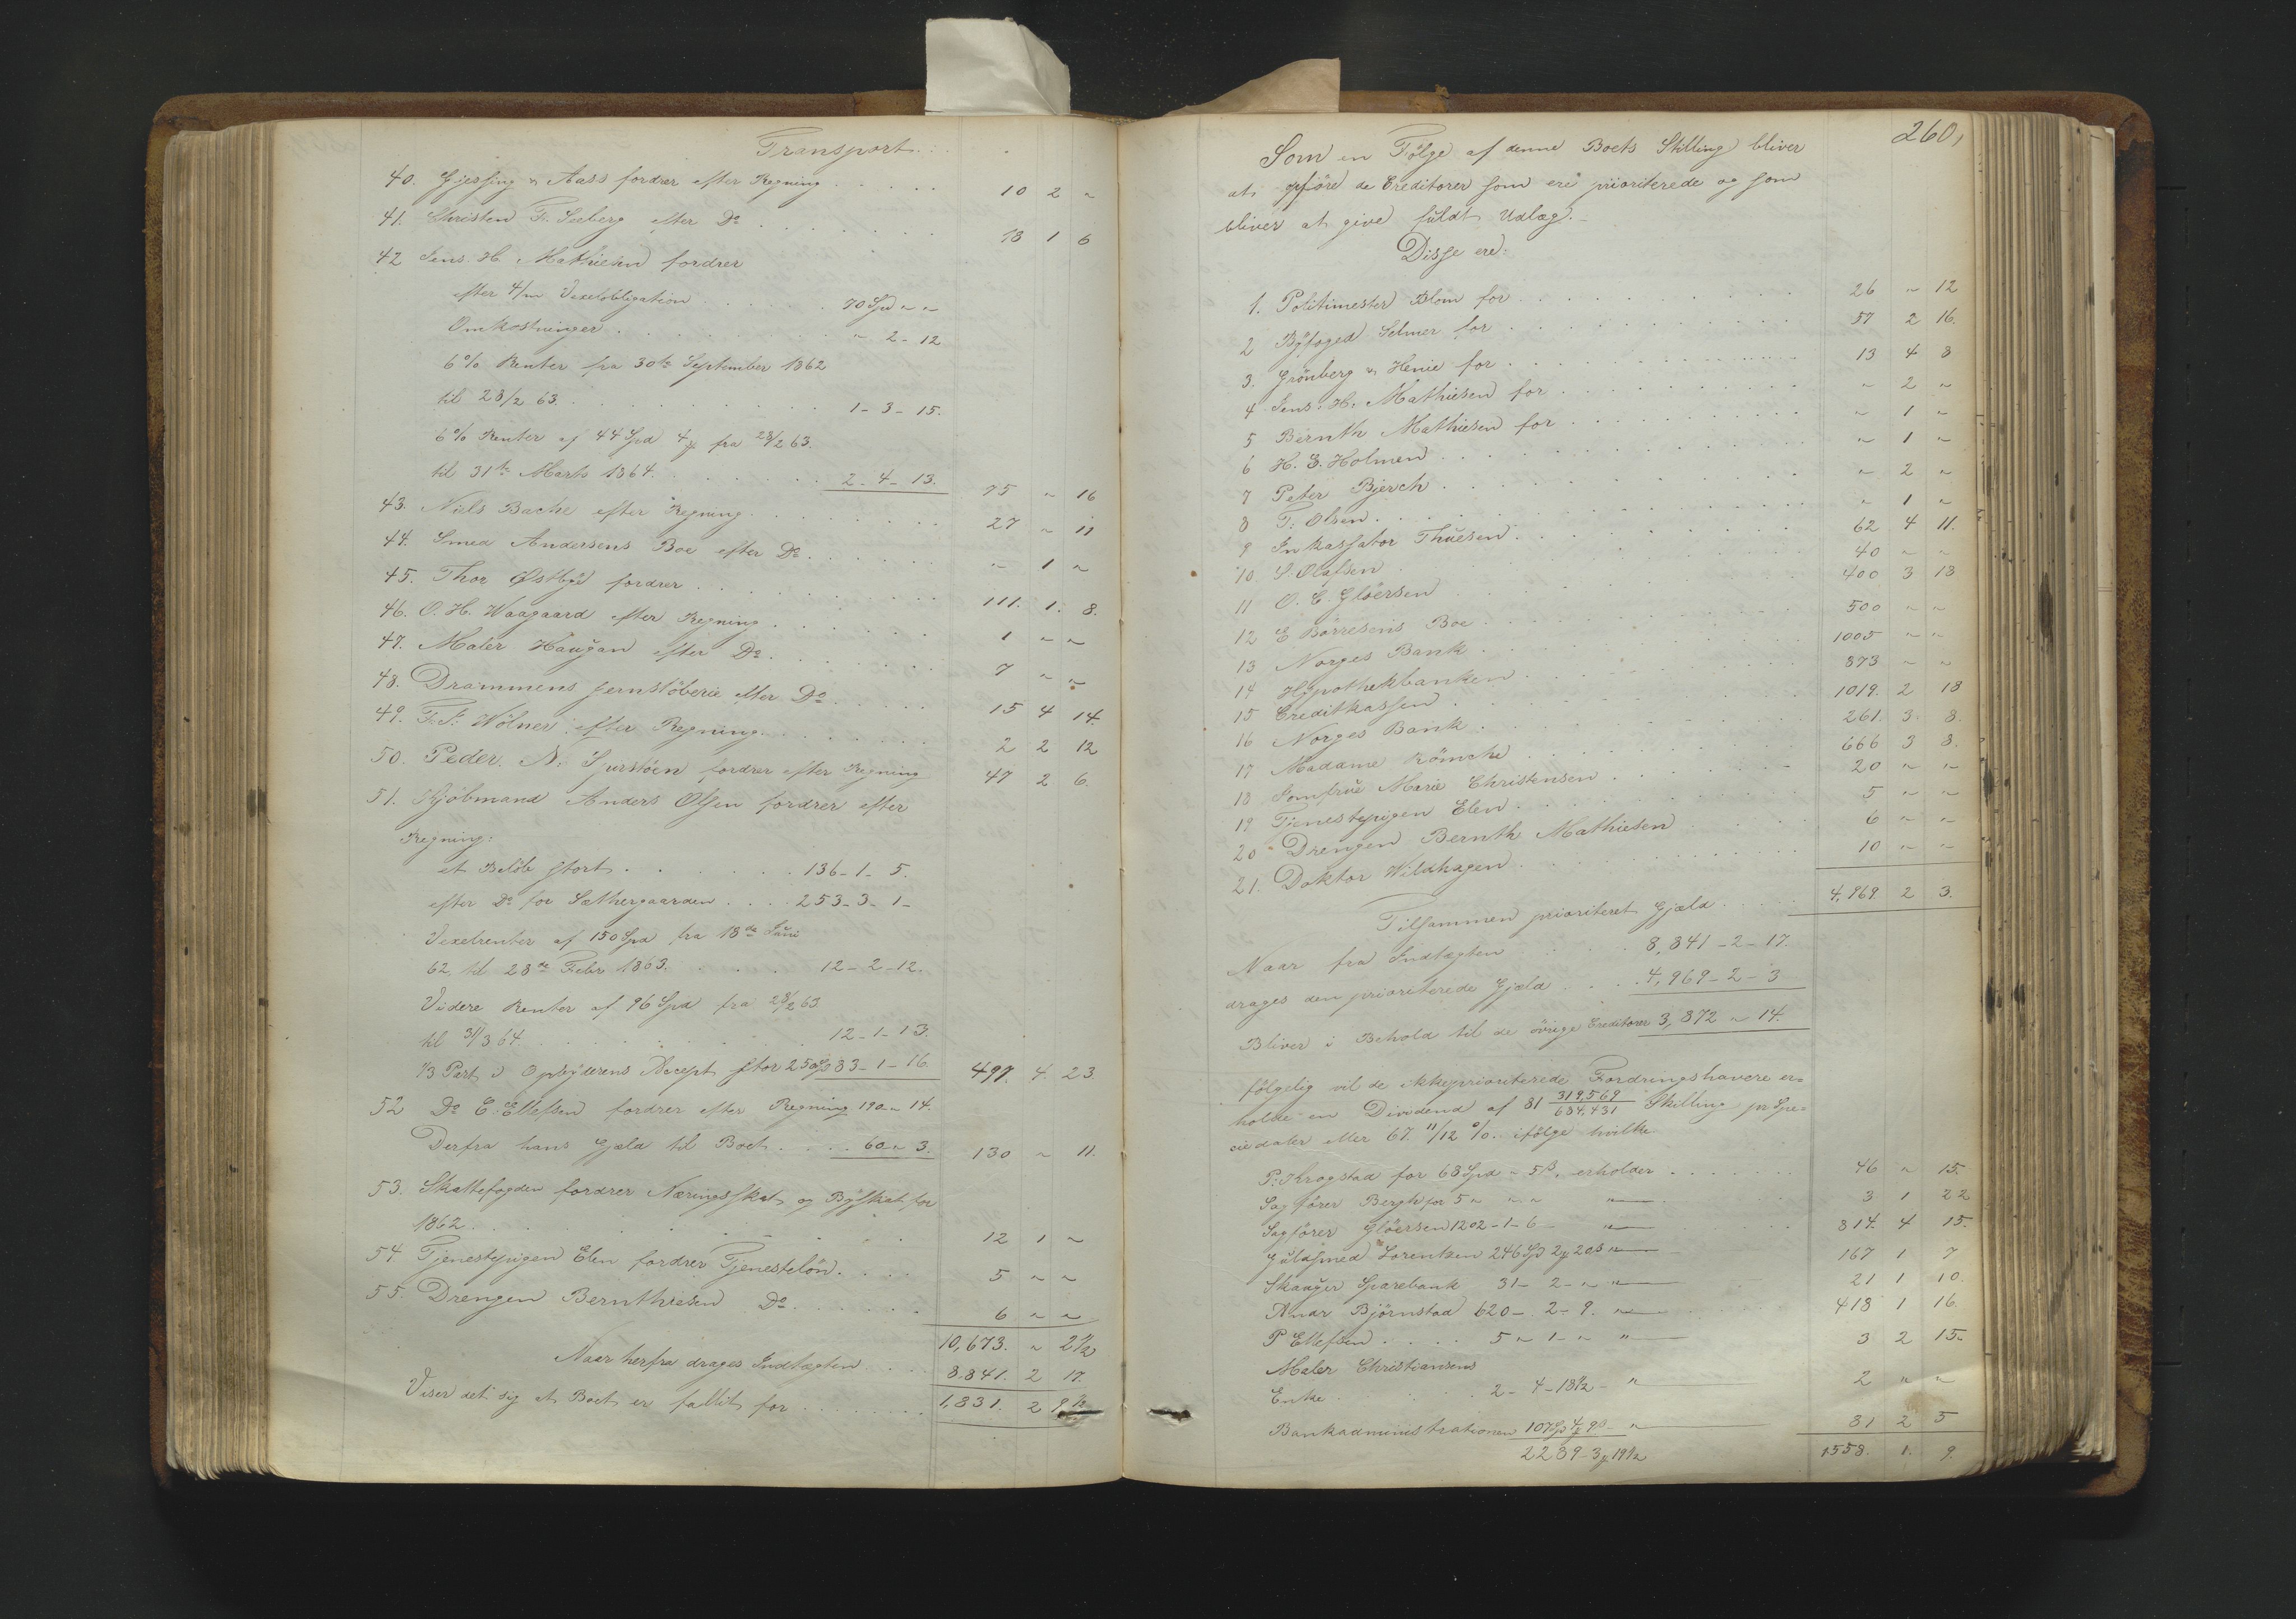 Transport.
40. Gjessing & Aass fordrer efter Regning . . . . . 10 2 "
41. Christen Fr. Seeberg efter Do . . . . . . . 18 1 6
42 Jens H. Mathiesen fordrer
efter 4/m Vexelobligation . . . . . 70 Spd " "
Omkostninger . . . . . . " 2 - 12
6% Renter fra 30te September 1862
til 28/2 63. . . . . . . . 1 - 3 - 15.
6% Renter af 44 Spd 4 fra 28/2 63.
til 31te Marts 1864. . . . . . . 2 - 4 - 13. 75 " 16
43. Niels Bache efter Regning . . . . . . . 27 " 11
44. Smed Andersens Boe efter Do . . . . . . " 1 "
45. Thor Østbye fordrer . . . . . . . . 111. 1. 8.
46. O. H. Waagaard efter Regning . . . . . . 1 " "
47. Maler Haugan efter Do . . . . . . . 7 " "
48. Drammens Jernstöberie efter Do . . . . . 15 4 14.
49. F. F. Wölner efter Regning . . . . . . . 2 2 12
50. Peder N. fordrer efter Regning 47 2 6.
51. Kjöbmand Anders Olsen fordrer efter
Regning:
et Belöb stort . . . . . . . 136 - 1 - 5.
efter Do for Sæthergaarden . . . . 253 - 3 - 1 -
Vexelrenter af 150 Spd fra 18de Juni
62, til 28de Febr 1863. . . . . 12 - 2 - 12.
Videre Renter af 96 Spd fra 28/2 63
til 31/3 64. . . . . . . . 12 - 1 - 13.
1/3 Part i Opbyderens Accept stor 250 Spd 83 - 1 - 16. 497. 4. 23.
52 Do C. Ellefsen fordrer efter Regning 190 " 14.
Derfra hans Gjæld til Boet . . . . 60 " 3. 130 " 11.
53. Skattefogden fordrer Næringsskat og Byskat for
1862 . . . . . . . . . . 12 1 "
54 Tjenestepigen Elen fordrer Tjenestelön . . . . 5 " "
55. Drengen Bernthiesen Do . . . . . . . 6 " "
10,673. " 2 1/2
Naar herfra drages Indtægten . . . 8.841. 2 17.
Viser det sig at Boet er fallit for . . . . . . . 1,831. 2 9 1/2
260,
Som en Fölge af denne Boets Stilling bliver
at opföre de Creditorer som ere prioriterede og som
bliver at give fuldt Udlæg. -
Disse ere:
1. Politimester Blom for . . . . . . . . 26 " 12
2 Byfoged Selmer for . . . . . . . . 57 2 16.
3. Grönberg & Henie for . . . . . . . . 13 4 8
4 Jens H. Mathiesen for . . . . . . . . " 2 "
5 Bernth Mathiesen for . . . . . . . . " 1 "
6 H. S. Holmen . . . . . . . . " 1 "
7 Peter Bjerch . . . . . . . . " 2 "
8 T. Olsen . . . . . . . . " 1 "
9 Inkassator Thuesen . . . . . . . . 62 4 11.
10. S. Olafsen . . . . . . . . 40 " "
11 O. C. Glöersen . . . . . . . . 400 3 13
12 E Börresens Boe . . . . . . . . 500 " "
13 Norges Bank . . . . . . . . 1005 " "
14 Hypothekbanken . . . . . . . . 873 " "
15 Creditkassen . . . . . . . . 1019. 2 18
16 Norges Bank . . . . . . . . 261. 3. 8.
17 Madame Römcke . . . . . . . . 666 3 8.
18 Jomfrue Marie Christensen . . . . . . . 20 " "
19 Tienestepigen Elen . . . . . . . . 5 " "
20 Drengen Bernth Mathiesen . . . . . 6 " "
21. Doktor Wildhagen . . . . . . . . 10 " "
Tilsammen prioriteret Gjæld . . . . . 4,969. 2 3.
Naar fra Indtægten . . . . 8,841 - 2 - 17.
drages den prioriterede Gjæld . . . . 4,969 - 2 - 3
Bliver i Behold til de övrige Creditorer 3,872 " 14.
fölgelig vil de ikkeprioriterede Fordringshavere er=
holde en Dividend af 81 319,569/684,431 Skilling pr Spe=
ciedaler eller 67. 11/12 %. ifölge hvilke
P. Krogstad for 68 Spd " 5 ß, erholder . . . . . . 46 " 15.
Sagförer Bergh for 5 " " " " 3 1 22
Sagförer Glöersen 1202 - 1 - 6 - " 814. 4 15.
Guldsmed Lorentzen 246 Spd 2 20 ß " 167 1 7
Skauger Sparebank 31 - 2 - " " 21 1 10.
Anar Björnstad 620 - 2 - 9. " 418 1 16.
P Ellefsen . . . . 5 " 1 - " " 3 2 15.
Maler Christiansens
Enke . . . . . . 2 - 4 - 18 1/2 - " 2 " "
Bankadministrationen 107 Spd 4 9 ß - " 81 2 5
2289 - 3 19 1/2 1558. 1. 9.